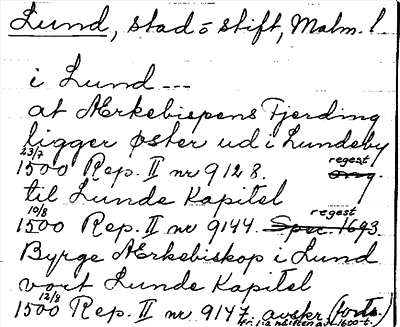 Lund, stad o stift, Malm. l.
i Lund ---
at Ærkebispens Fjerding
ligger øster ud i Lundeby
23/7 regest
1500 Rep. II nr 9128. orig.
til Lunde Kapitel
10/8 regest
1500 Rep. II nr 9144. Spec. 1693.
Byrge Ærkebiskop i Lund
vort Lunde Kapitel
12/8
1500 Rep. II nr 9147. avskr. (forts.)
1600-t.